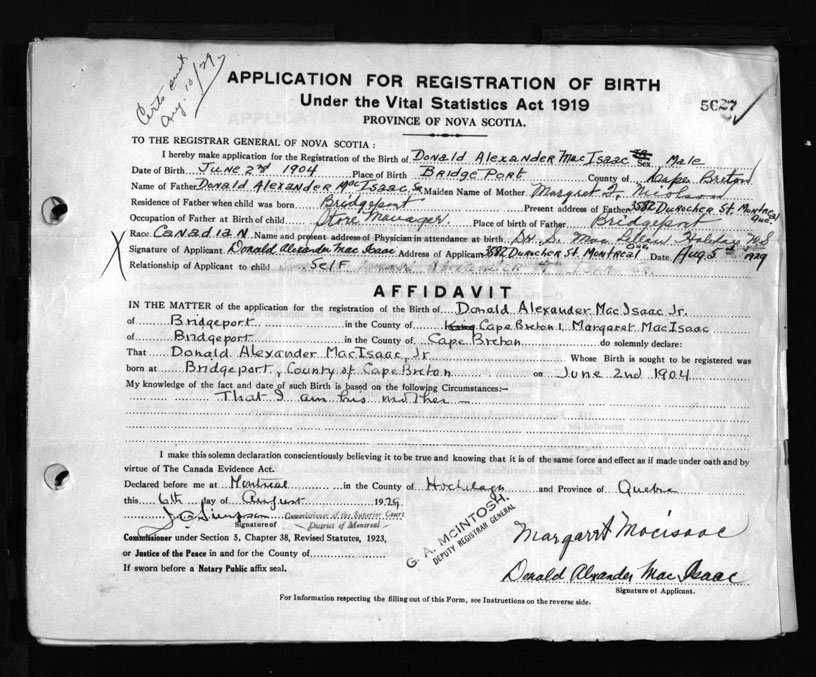 Certs sent
Aug. 10/29
APPLICATION FOR REGISTRATION OF BIRTH
Under the Vital Statistics Act 1919
PROVINCE OF NOVA SCOTIA.
5627
TO THE REGISTRAR GENERAL OF NOVA SCOTIA :
I hereby make application for the Registration of the Birth of Donald Alexander MacIsaac Sex Male
Date of Birth June 2nd 1904 Place of Birth Bridgeport County of Cape Breton
Name of Father Donald Alexander MacIsaac Sr Maiden Name of Mother Margret
Residence of Father when child was born Bridgeport Present address of Father 3582 Durocher St. Montreal Que
Occupation of Father at Birth of child Store Manager Place of birth of Father Bridgeport
Race. Canadian. Name and present address of Physician in attendance at birth Dr. Halifax N.S
Signature of Applicant Donald Alexander MacIsaac Address of Applicant 3582 Durocher St. Montreal Que Date. Aug. 5th 1929
Relationship of Applicant to child Self
AFFIDAVIT
IN THE MATTER of the application for the registration of the Birth of Donald Alexander MacIsaac Jr.
of Bridgeport in the County of Cape Breton I, Margaret MacIsaac
of Bridgeport in the County of Cape Breton do solemnly declare:
That Donald Alexander MacIsaac, Jr Whose Birth is sought to be registered was
born at Bridgeport, County of Cape Breton on June 2nd 1904
My knowledge of the fact and date of such Birth is based on the following Circumstances:—
That I am his mother —
I make this solemn declaration conscientiously believing it to be true and knowing that it is of the same force and effect as if made under oath and by
virtue of The Canada Evidence Act.
Declared before me at Montreal in the County of Hochelaga and Province of Quebec
this 6th day of August 1929
J. C. Simpson Commissioner of the Superior Court
Signature of District of Montreal
Commissioner under Section 5, Chapter 38, Revised Statutes, 1923,
or Justice of the Peace in and for the County of
If sworn before a Notary Public affix seal.
G. A. McINTOSH.
DEPUTY REGISTRAR GENERAL
Margaret MacIsaac
Donald Alexander MacIsaac
Signature of Applicant.
For Information respecting the filling out of this Form, see Instructions on the reverse side.